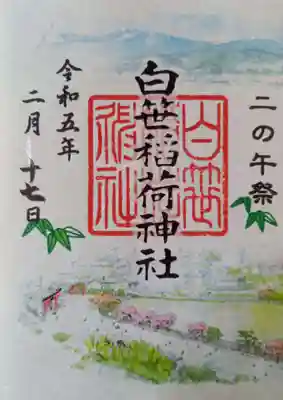 二の午祭
白笹稲荷神社
白笹
稲荷社
令和五年
二月十七日